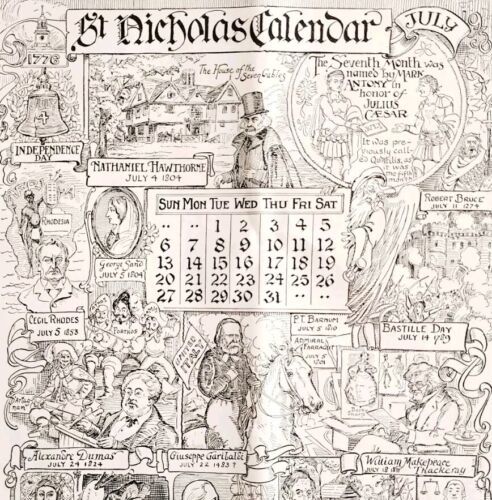 St Nicholas Calendar
JULY
1776
INDEPENDENCE
DAY
The House of the
Seven Gables
NATHANIEL HAWTHORNE
JULY 4 1804
The Seventh Month was
named by MARK
ANTONY in
honor of
JULIUS
CÆSAR
It was pre-
viously call-
ed Quintilis, as
it was
the fifth
month
RHODESIA
CECIL RHODES
JULY 5 1853
George Sand
JULY 5 1804
SUN MON TUE WED THU FRI SAT
.. .. 1 2 3 4 5
6 7 8 9 10 11 12
13 14 15 16 17 18 19
20 21 22 23 24 25 26
27 28 29 30 31 .. ..
ROBERT BRUCE
JULY 11 1274
BASTILLE DAY
JULY 14 1789
P.T. BARNUM
JULY 5 1810
ADMIRAL
FARRAGUT
JULY 5
1801
PORTHOS
Alexandre Dumas
JULY 24 1824
Giuseppe Garibaldi
JULY 22
William Makepeace
Thackeray
JULY 18